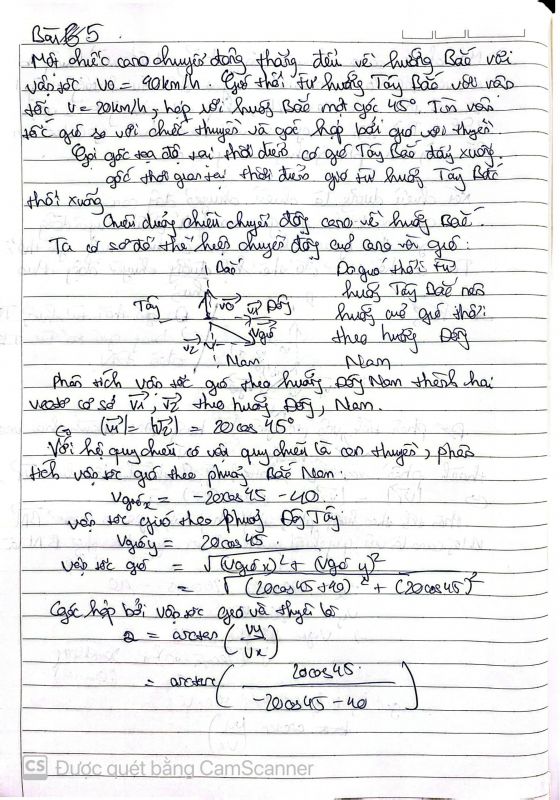 Bài 5.
Một chiếc cano chuyển động thẳng đều về hướng Bắc với
vận tốc v0 = 40km/h. Gió thổi từ hướng Tây Bắc với vận
tốc v = 20km/h, hợp với hướng Bắc một góc 45°. Tìm vận
tốc gió so với chiếc thuyền và góc hợp bởi gió với thuyền.
Gọi gốc tọa độ tại thời điểm có gió Tây Bắc đẩy xuống.
gốc thời gian tại thời điểm gió từ hướng Tây Bắc
thổi xuống
Chiều dương chiều chuyển động cano về hướng Bắc.
Ta có sơ đồ thể hiện chuyển động của cano với gió:
Bắc
Tây v0 v1 Đông
vgió
v2
Nam
Do gió thổi từ
hướng Tây Bắc nên
hướng của gió thổi
theo hướng Đông
Nam
Phân tích vận tốc gió theo hướng Đông Nam thành hai
vectơ cơ sở v1; v2 theo hướng Đông, Nam.
|v1| = |v2| = 20cos45°.
Với hệ quy chiếu có vật quy chiếu là con thuyền, phân
tích vận tốc gió theo phương Bắc Nam:
Vgió x = -20cos45 - 40
vận tốc gió theo phương Đông Tây:
Vgió y = 20cos45.
Vận tốc gió = √(Vgió x)² + (Vgió y)²
= √(20cos45+40)² + (20cos45)²
Góc hợp bởi vận tốc gió và thuyền là
= arctan (vy/vx)
= arctan (20cos45 / -20cos45 - 40)
CS Được quét bằng CamScanner